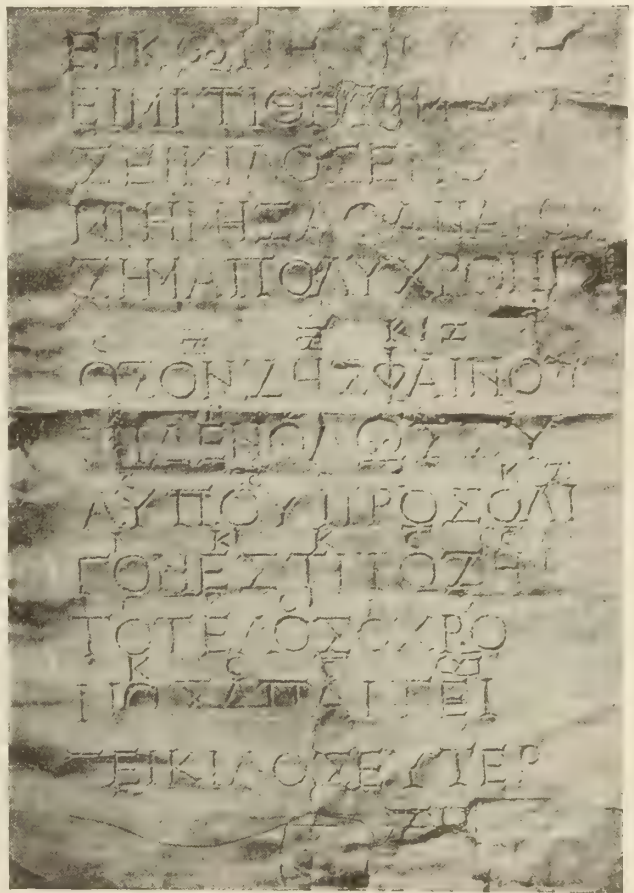 ΕΙΚΩΝΗ
ΕΙΜΙΤΙΘΗΣΙ
ΣΕΙΚΙΛΟΣΕΝΘ
ΜΝΗΜΗΣΑΘΑΝΑΤΟ
ΣΗΜΑΠΟΛΥΧΡΟΝΙΟ
C Z Z ΚΙΖ
ΟΣΟΝΖΗΣΦΑΙΝΟΥ
ΜΗΔΕΝΟΛΩΣΣΥ
ΛΥΠΟΥΠΡΟΣΟΛΙ
ΓΟΝΕΣΤΙΤΟΖΗΝ
ΤΟΤΕΛΟΣΟΧΡΟ
ΝΟΣΑΠΑΙΤΕΙ
ΣΕΙΚΙΛΟΣΕΥΤΕΡ
ΖΗ